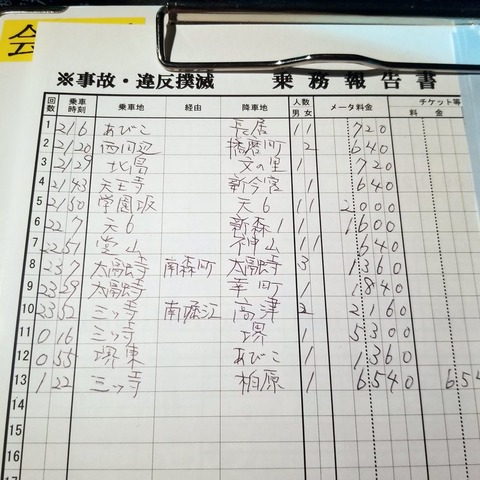 ※事故・違反撲滅 乗務報告書
回数 乗車時刻 乗車地 経由 降車地 人数 男 女 メータ料金 チケット等 料金
1 21 6 あびこ 長居 1 1 720
2 21 20 西田辺 播磨町 2 640
3 21 29 北畠 文の里 1 720
4 21 43 天王寺 新今宮 1 640
5 21 50 学園坂 天6 1 1 2000
6 22 7 天6 新森1 1 1600
7 22 51 堂山 神山 1 1 640
8 23 7 太融寺 南森町 太融寺 3 1360
9 23 29 太融寺 幸町 1 1840
10 23 52 三ッ寺 南堀江 高津 2 2160
11 0 16 三ッ寺 堺 1 5300
12 0 55 堺東 あびこ 1 1360
13 1 22 三ッ寺 柏原 1 6540 654
14
15
16
17